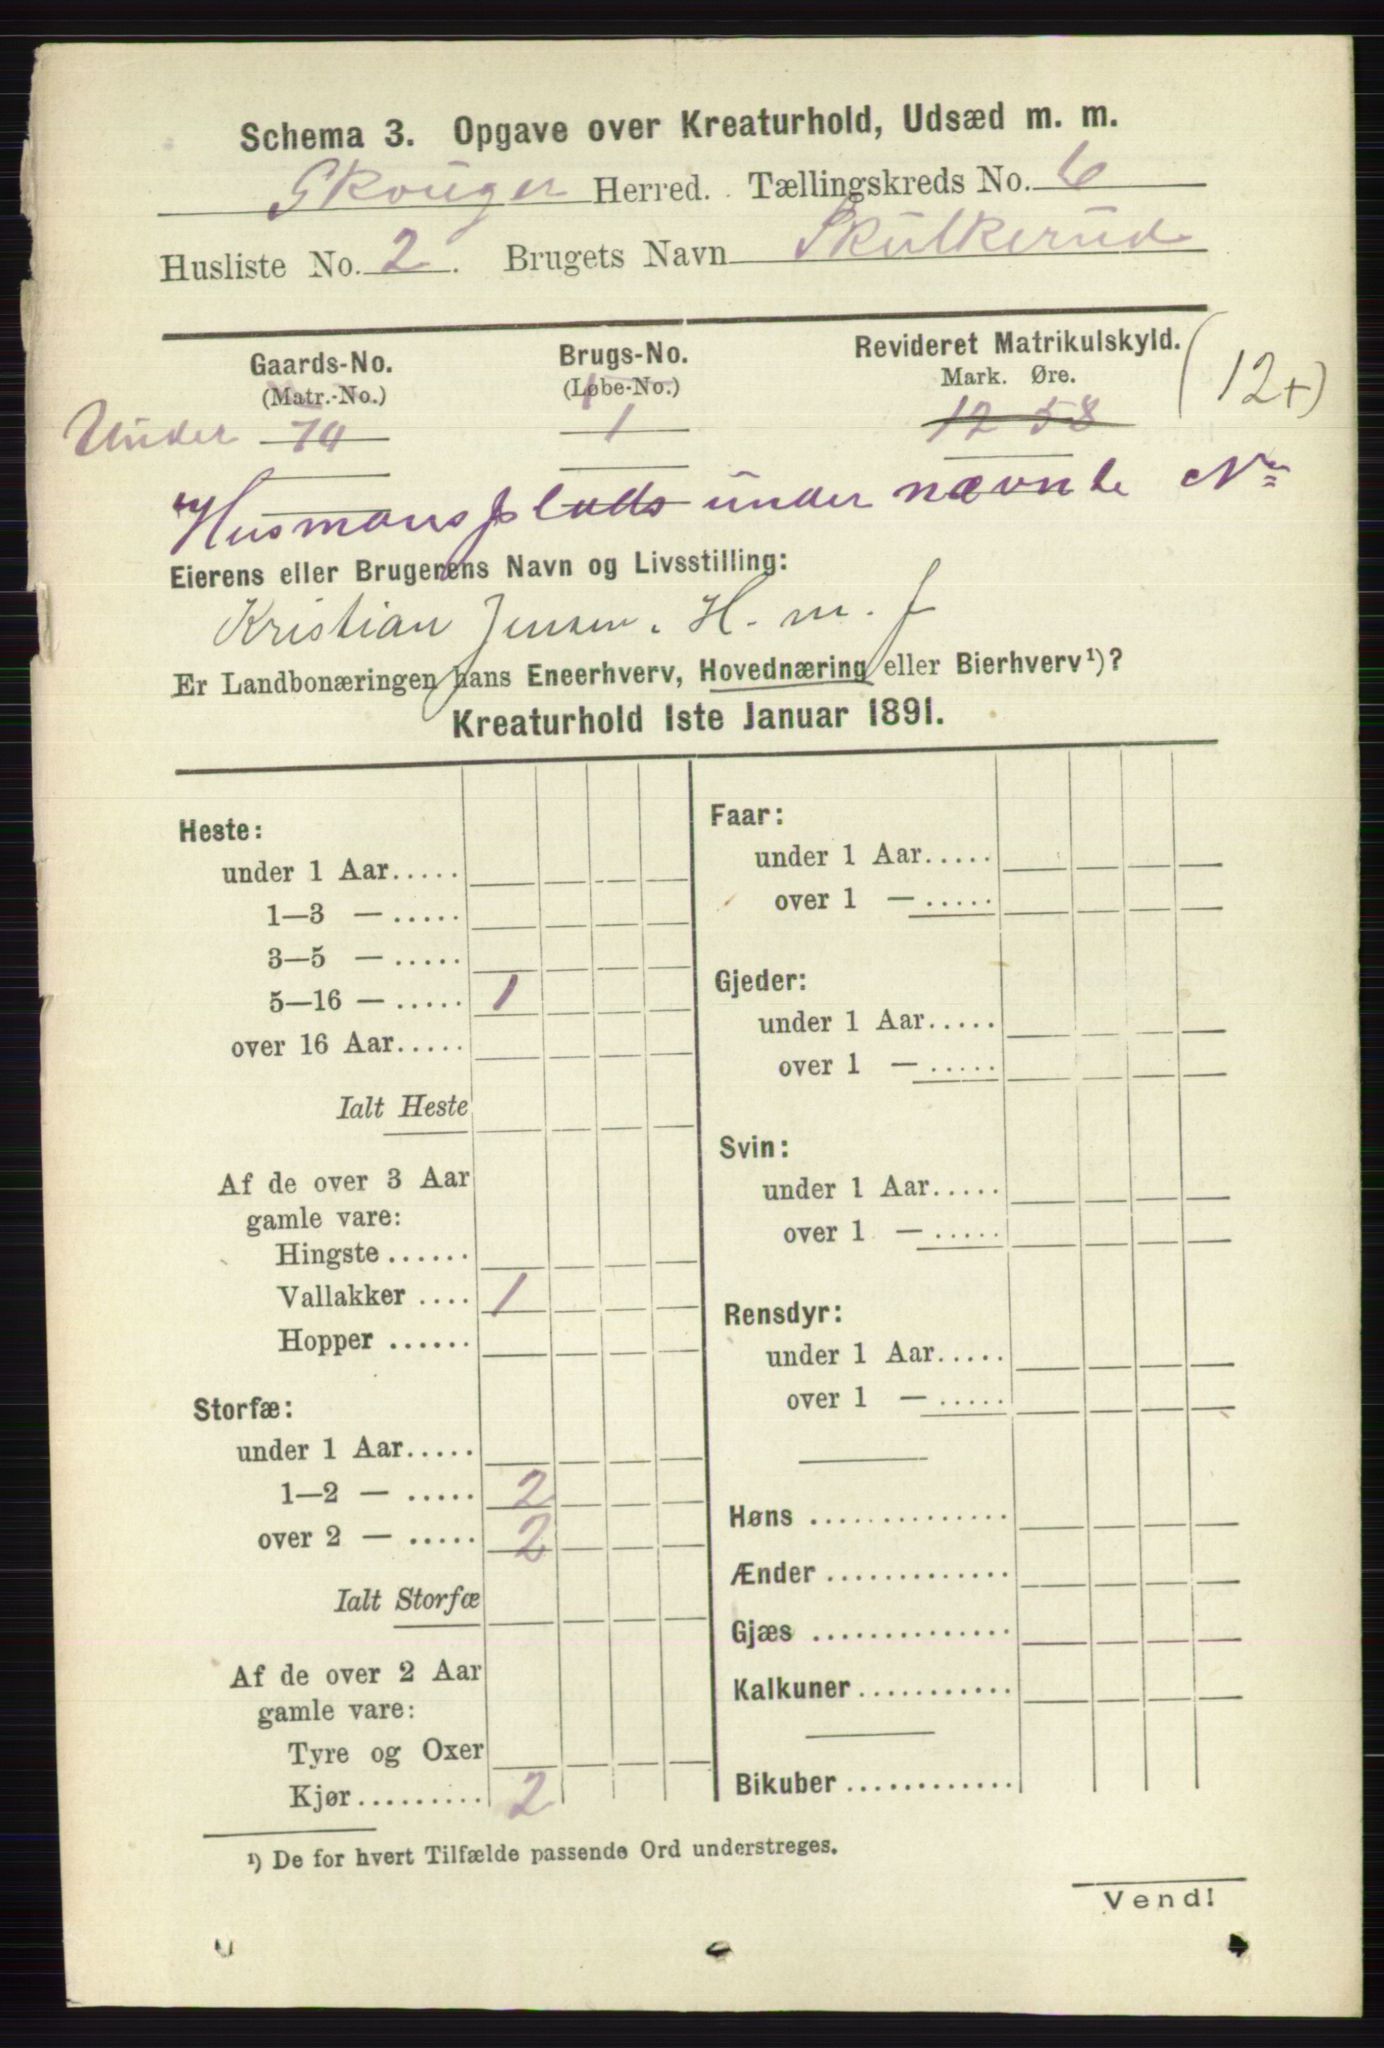 Schema 3. Opgave over Kreaturhold, Udsæd m. m.
Skouger Herred. Tællingskreds No. 6
Husliste No. 2. Brugets Navn Skulkerud
Gaards-No. Brugs-No. Revideret Matrikulskyld.
(Matr.-No.) (Løbe-No.) Mark. Øre.
(12+)
Under 74 1 12 58
Husmansplads under nævnte No
Eierens eller Brugerens Navn og Livsstilling:
Kristian Jensen. H. m. f
Er Landbonæringen hans Eneerhverv, Hovednæring eller Bierhverv¹)?
Kreaturhold 1ste Januar 1891.
Heste:
under 1 Aar.....
1—3 — .....
3—5 — .....
5—16 — ..... 1
over 16 Aar.....
Ialt Heste
Af de over 3 Aar
gamle vare:
Hingste ......
Vallakker .... 1
Hopper ......
Storfæ:
under 1 Aar.....
1—2 — ..... 2
over 2 — ..... 2
Ialt Storfæ
Af de over 2 Aar
gamle vare:
Tyre og Oxer
Kjør ......... 2
Faar:
under 1 Aar.....
over 1 — .....
Gjeder:
under 1 Aar.....
over 1 — .....
Svin:
under 1 Aar.....
over 1 — .....
Rensdyr:
under 1 Aar.....
over 1 — .....
Høns ..............
Ænder .............
Gjæs ..............
Kalkuner ...........
Bikuber ............
¹) De for hvert Tilfælde passende Ord understreges.
Vend!